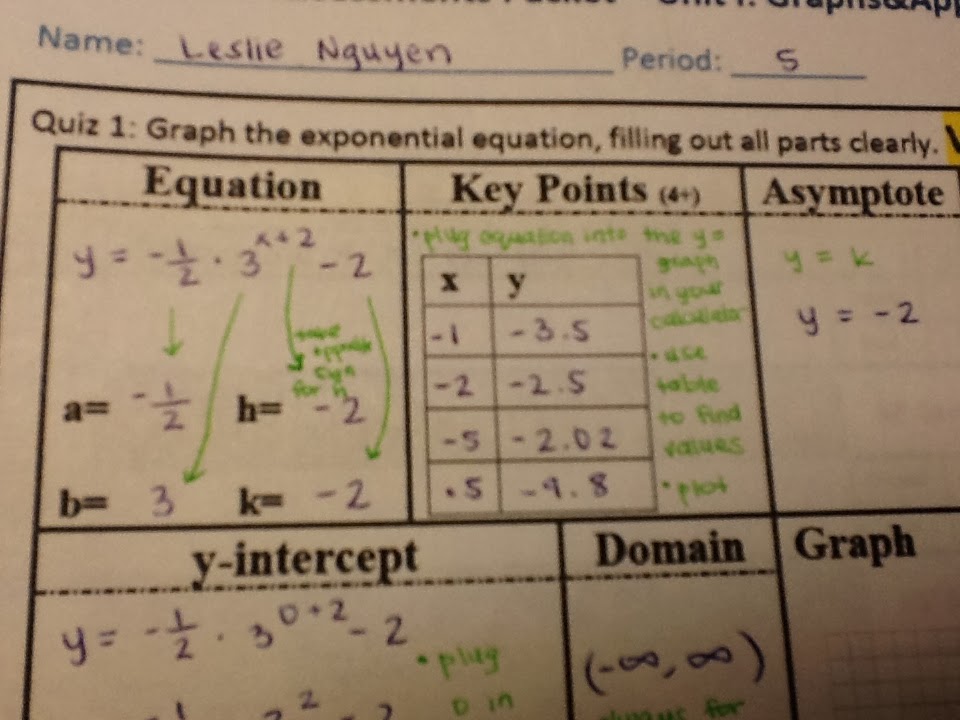 Name: Leslie Nguyen Period: 5
Quiz 1: Graph the exponential equation, filling out all parts clearly.
Equation
y = -1/2 · 3^(x+2) - 2
take
opposite
sign
for h
a= -1/2 h= -2
b= 3 k= -2
Key Points (4+)
• plug equation into the y=
graph
in your
calculator
• use
table
to find
values
• plot
x y
-1 -3.5
-2 -2.5
-5 -2.02
.5 -9.8
Asymptote
y = k
y = -2
y-intercept
y = -1/2 · 3^(0+2) - 2
• plug
0 in
Domain
(-∞, ∞)
always for
Graph